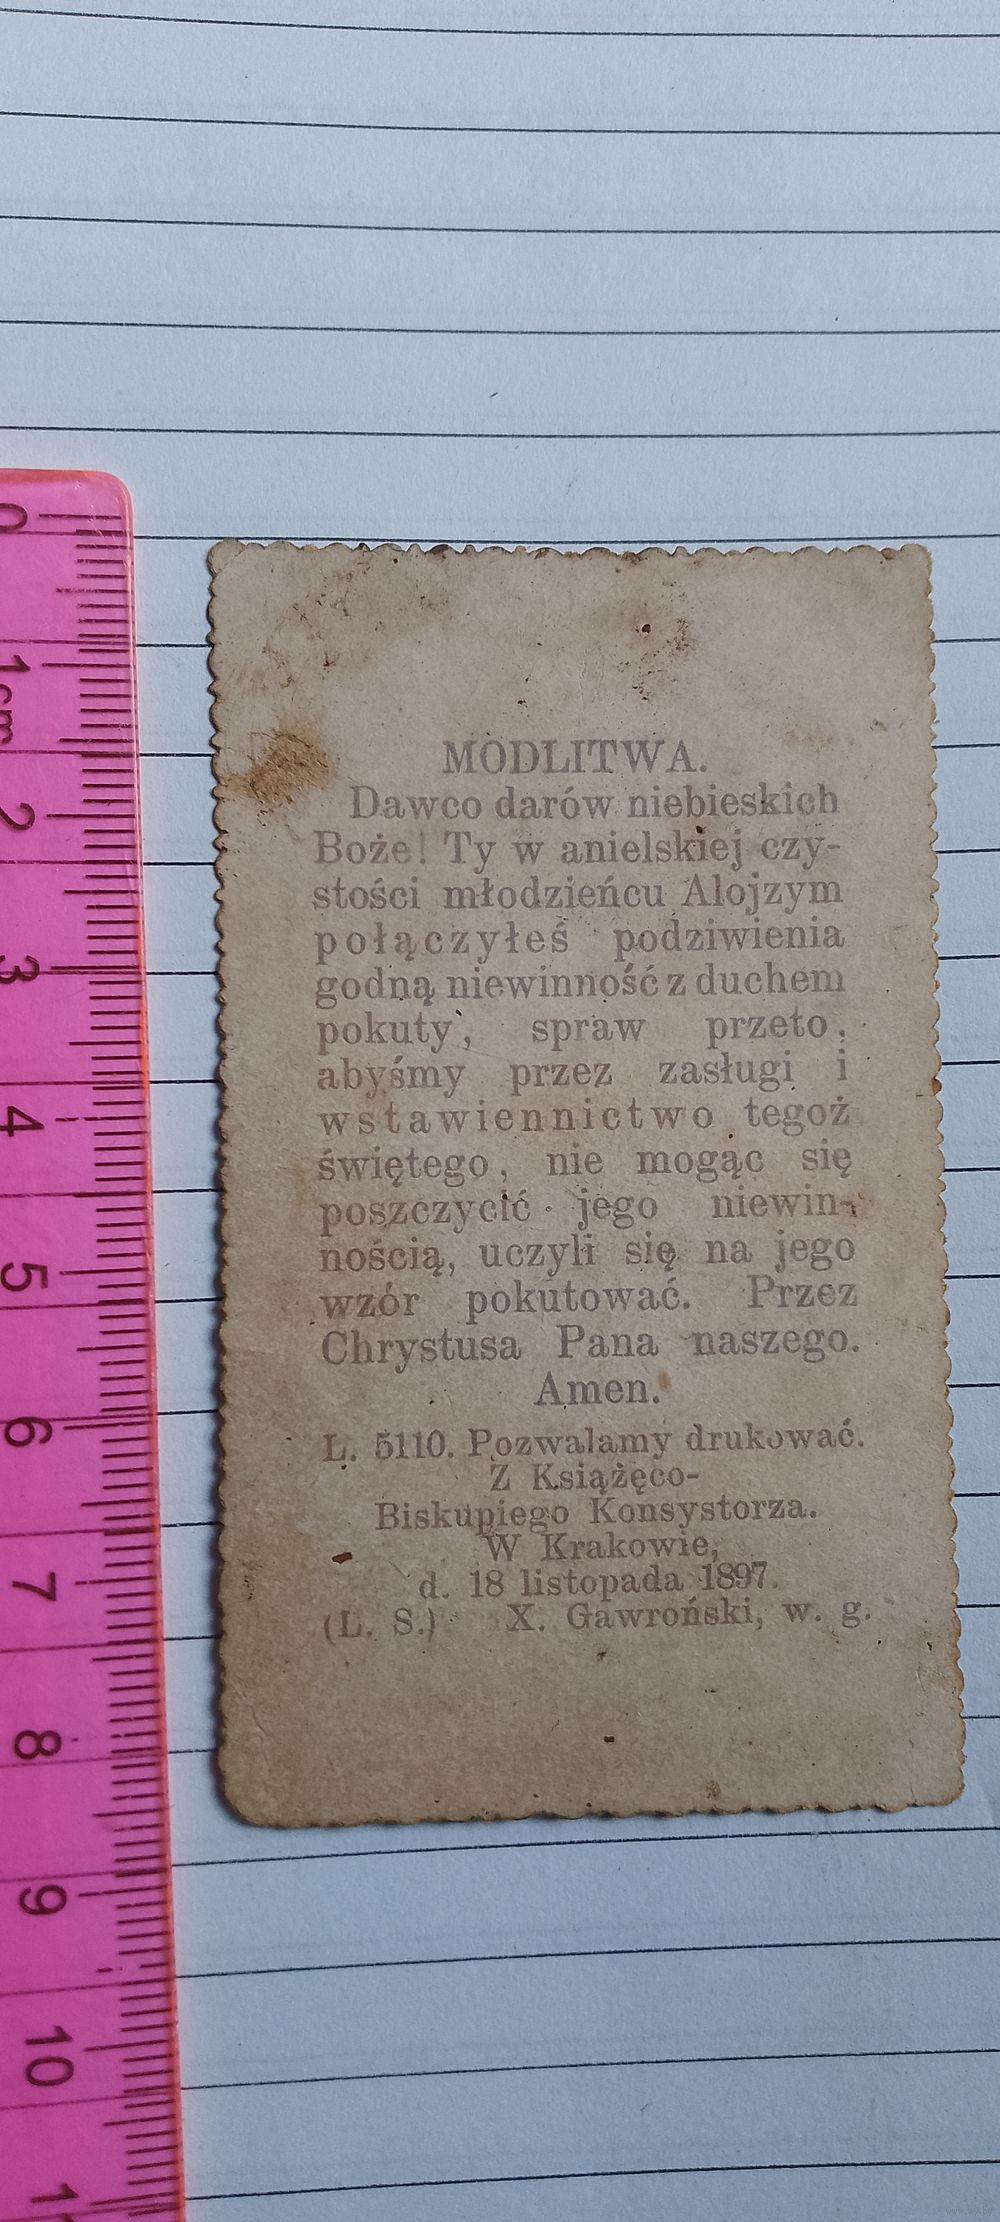 MODLITWA.
Dawco darów niebieskich
Boże! Ty w anielskiej czy-
stości młodzieńcu Alojzym
połączyłeś podziwienia
godną niewinność z duchem
pokuty, spraw przeto,
abyśmy przez zasługi i
wstawiennictwo tegoż
świętego, nie mogąc się
poszczycić jego niewin-
nością, uczyli się na jego
wzór pokutować. Przez
Chrystusa Pana naszego.
Amen.
L. 5110. Pozwalamy drukować.
Z Książęco-
Biskupiego Konsystorza.
W Krakowie,
d. 18 listopada 1897.
(L. S.) X. Gawroński, w. g.
0
1cm
2
3
4
5
6
7
8
9
10